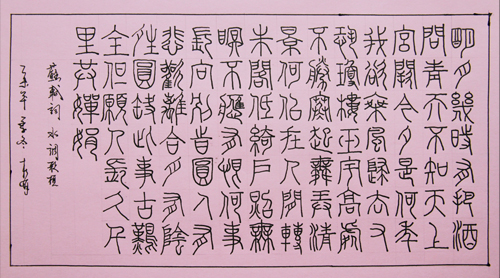 明月幾時有把酒
問青天不知天上
宮闕今夕是何年
我欲乘風歸去又
恐瓊樓玉宇高處
不勝寒起舞弄清
影何似在人間轉
朱閣低綺戶照無
眠不應有恨何事
長向別時圓人有
悲歡離合月有陰
晴圓缺此事古難
全但願人長久千
里共嬋娟
蘇軾詞 水调歌頭
乙未年孟冬